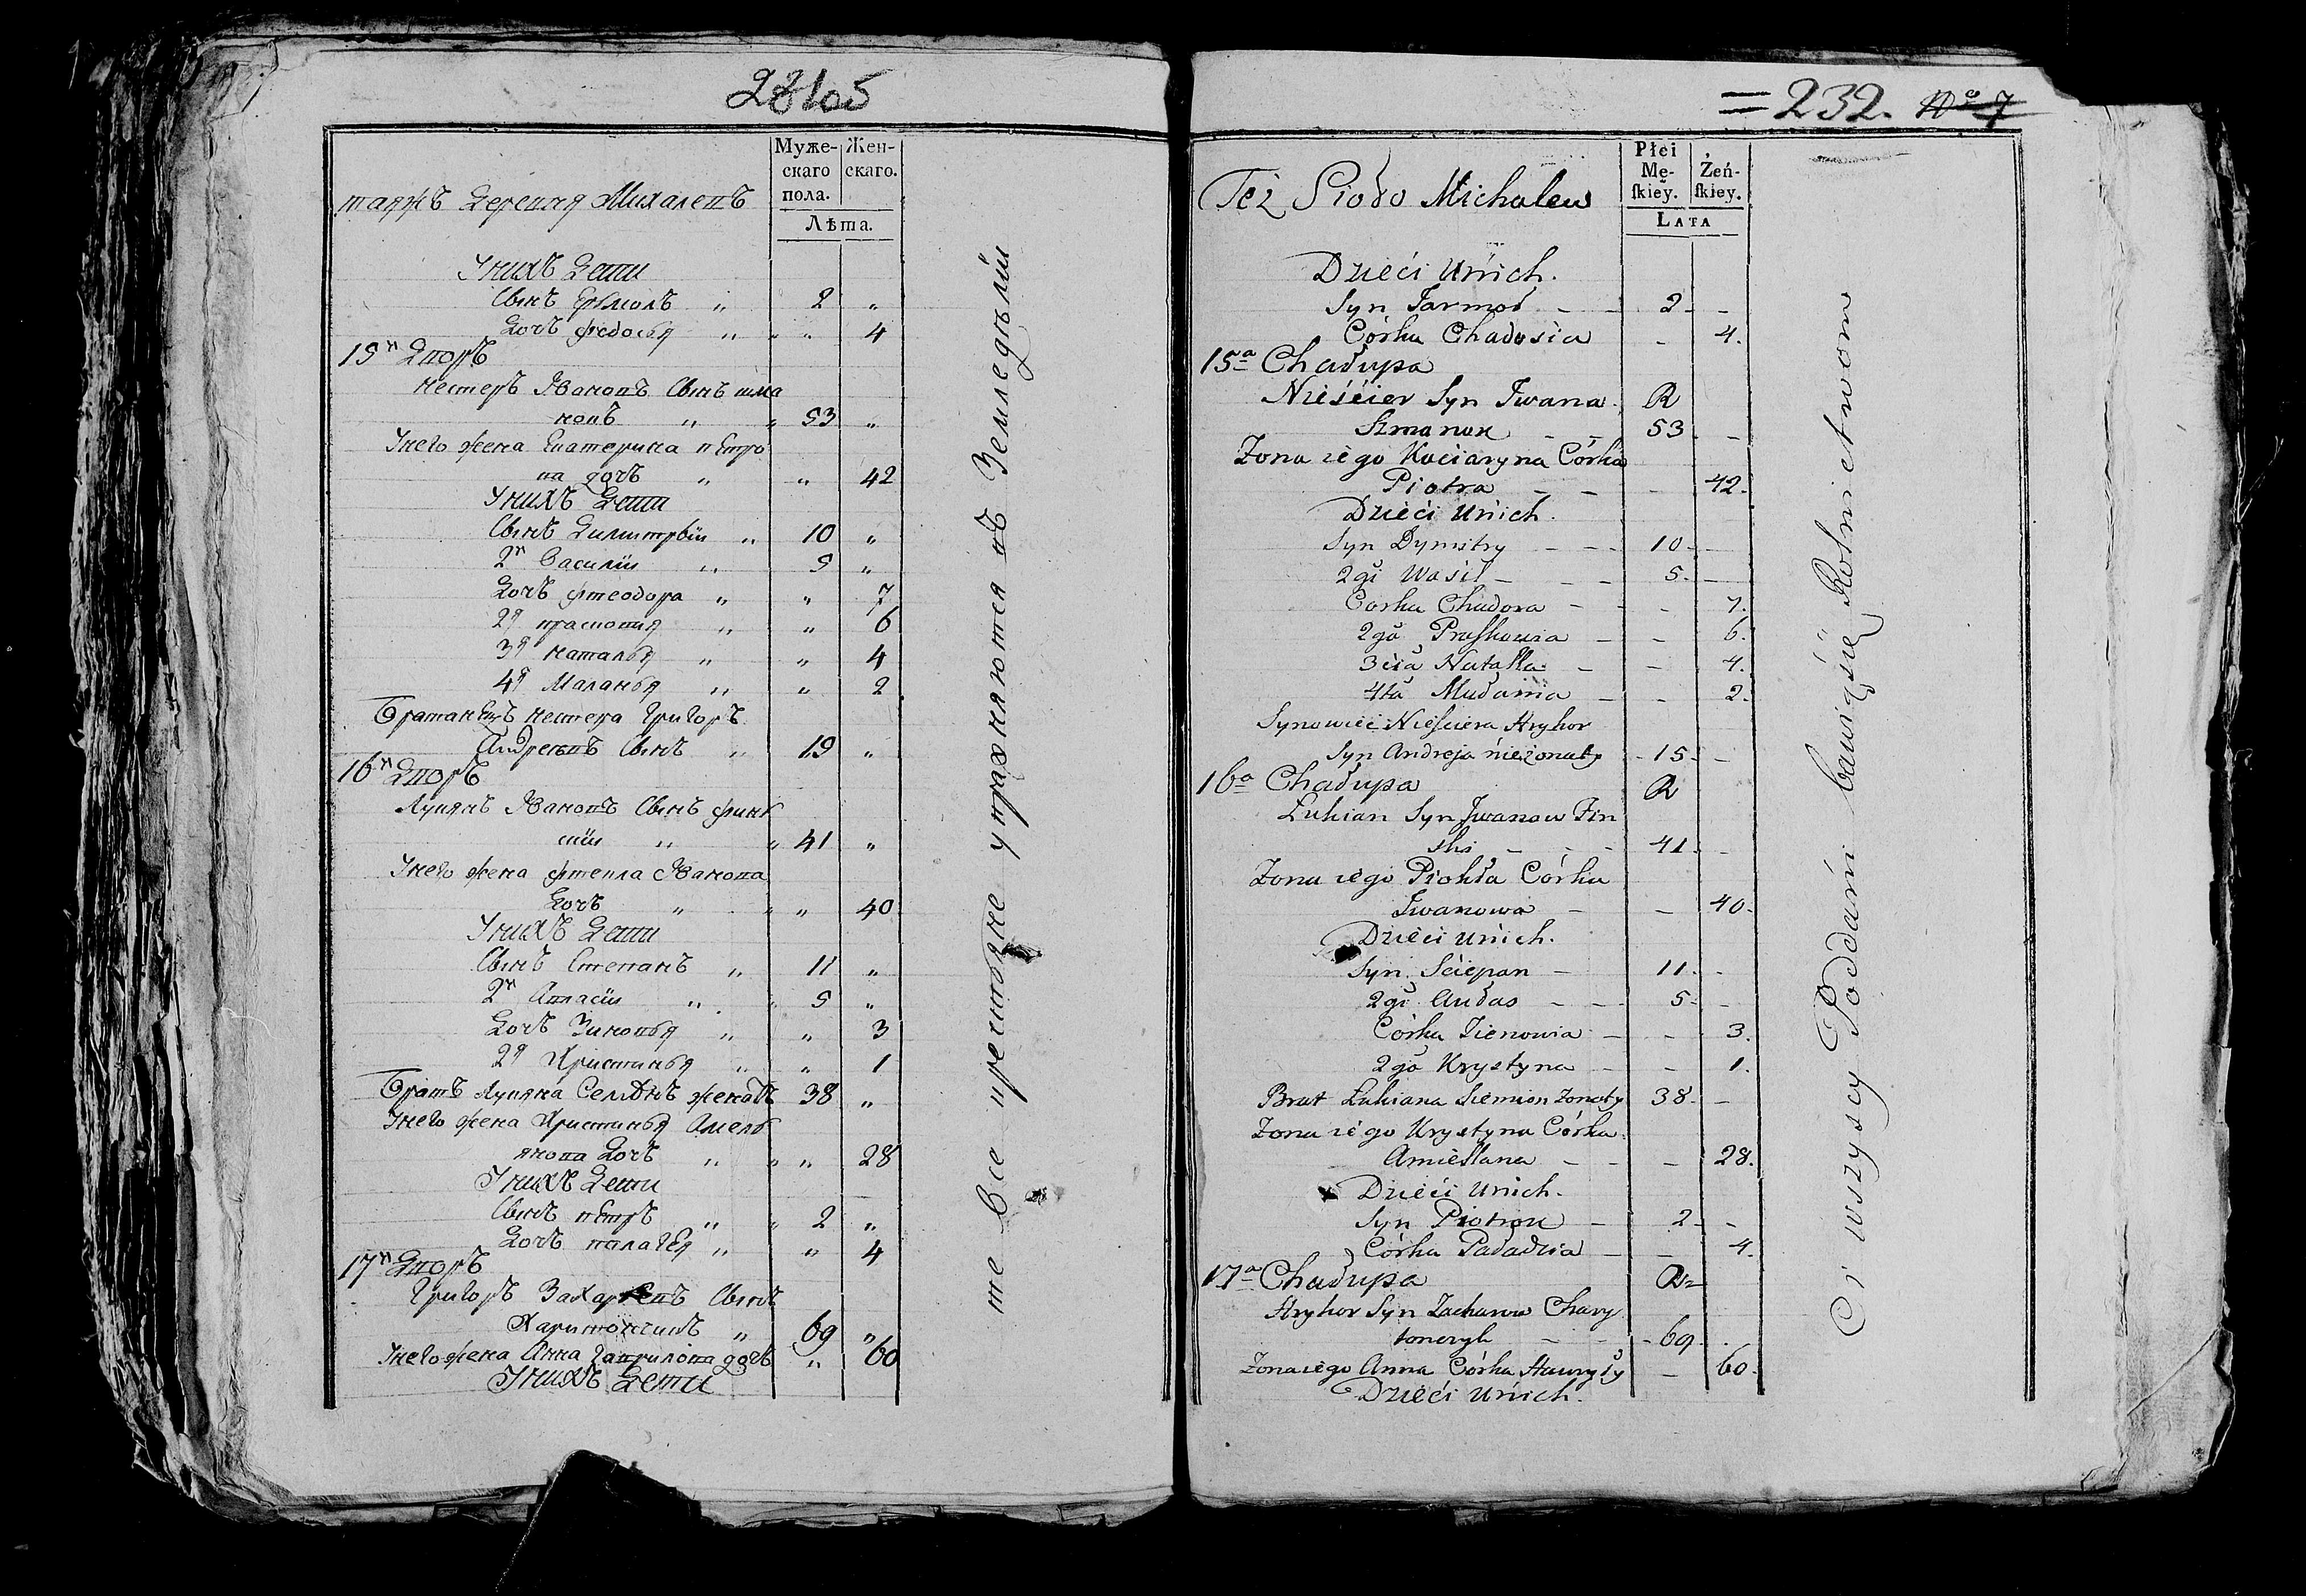 231об
Муже-
скаго
пола.
Жен-
скаго.
Лѣта.
таяжъ Деревня Михалевъ
У нихъ Дети
Сынъ Ермолъ „ 2 „
Дочъ Федосья „ „ „ 4
15й Дворъ
Нестеръ Ивановъ Сынъ шма
новъ „ „ 53 „
У него жена Екатерина пЕтро
ва дочъ „ „ 42
У нихъ Дети
Сынъ Димитрѣй „ 10 „
2й Василій „ 5 „
Дочъ Фтеодора „ „ 7
2я прасковия „ „ 6
3я Наталья „ „ 4
4я Маланья „ „ 2
Братанецъ Нестера Григоръ
Андреевъ Сынъ „ 15 „
16й Дворъ
Лукянъ Ивановъ Сынъ финь
скій „ „ 41 „
У него жена Фтекла Иванова
Дочъ „ „ „ 40
У нихъ Дети
Сынъ Степанъ „ 11 „
2й Апласій „ „ 5 „
Дочъ Зиновья „ „ 3
2я Христинья „ „ 1
Братъ Лукяна Семѣнъ женатъ 38 „
У него жена Христинья Амель
янова Дочъ „ „ „ 28
У нихъ Дети
Сынъ пЕтръ „ „ 2 „
Дочъ палагея „ „ 4
17й Дворъ
Григоръ Захаревъ Сынъ
Харитончикъ „ 69 „
У него жена Анна Гаврилова дочъ „ 60
У нихъ Дети
те Все крестьяне упражняются въ Земледѣлій
=232. No 7
Płci
Mę-
skiey.
Żeń-
skiey.
Lata
Też Sioło Michalew
Dzieći Unich.
Syn Jarmoł – – 2 –
Córka Chadosia – 4.
15a Chałupa
Nieściер Syn Iwana R
Szmanon – – 53 –
Żona iego Kaciaryna Córka
Piotra – – – 42.
Dzieći Unich.
Syn Dymitry – – 10 –
2gi Wasil – – – 5. –
Corka Chadora – – – 7.
2ga Praskowia – – 6.
3cia Natalla – – 4.
4ta Małania – – 2.
Synowiec Nieściera Hryhor
Syn Andreja nieżonaty – 15 –
16a Chałupa R
Łukian Syn Iwanow Fin
ski – – – 41 –
Żona iego Piokła Córka
Iwanowa – – 40.
Dzieći Unich.
Syn Sciepan – 11. –
2gi Aułas – – – 5 –
Córka Zienowia – – 3.
2ga Krystyna – – 1.
Brat Łukiana Siemion Żonaty 38 –
Żona iego Krystyna Córka
Amiellana – – – 28.
Dzieći Unich.
Syn Piotron – 2 –
Córka Pałazia – – 4.
17a Chałupa R
Hryhor Syn Zacharow Chary
tonczyk – – – 69 –
Żona iego Anna Córka Hauryły – 60.
Dzieći Unich.
Ci wszyscy Poddani bawią się Rolnictwom